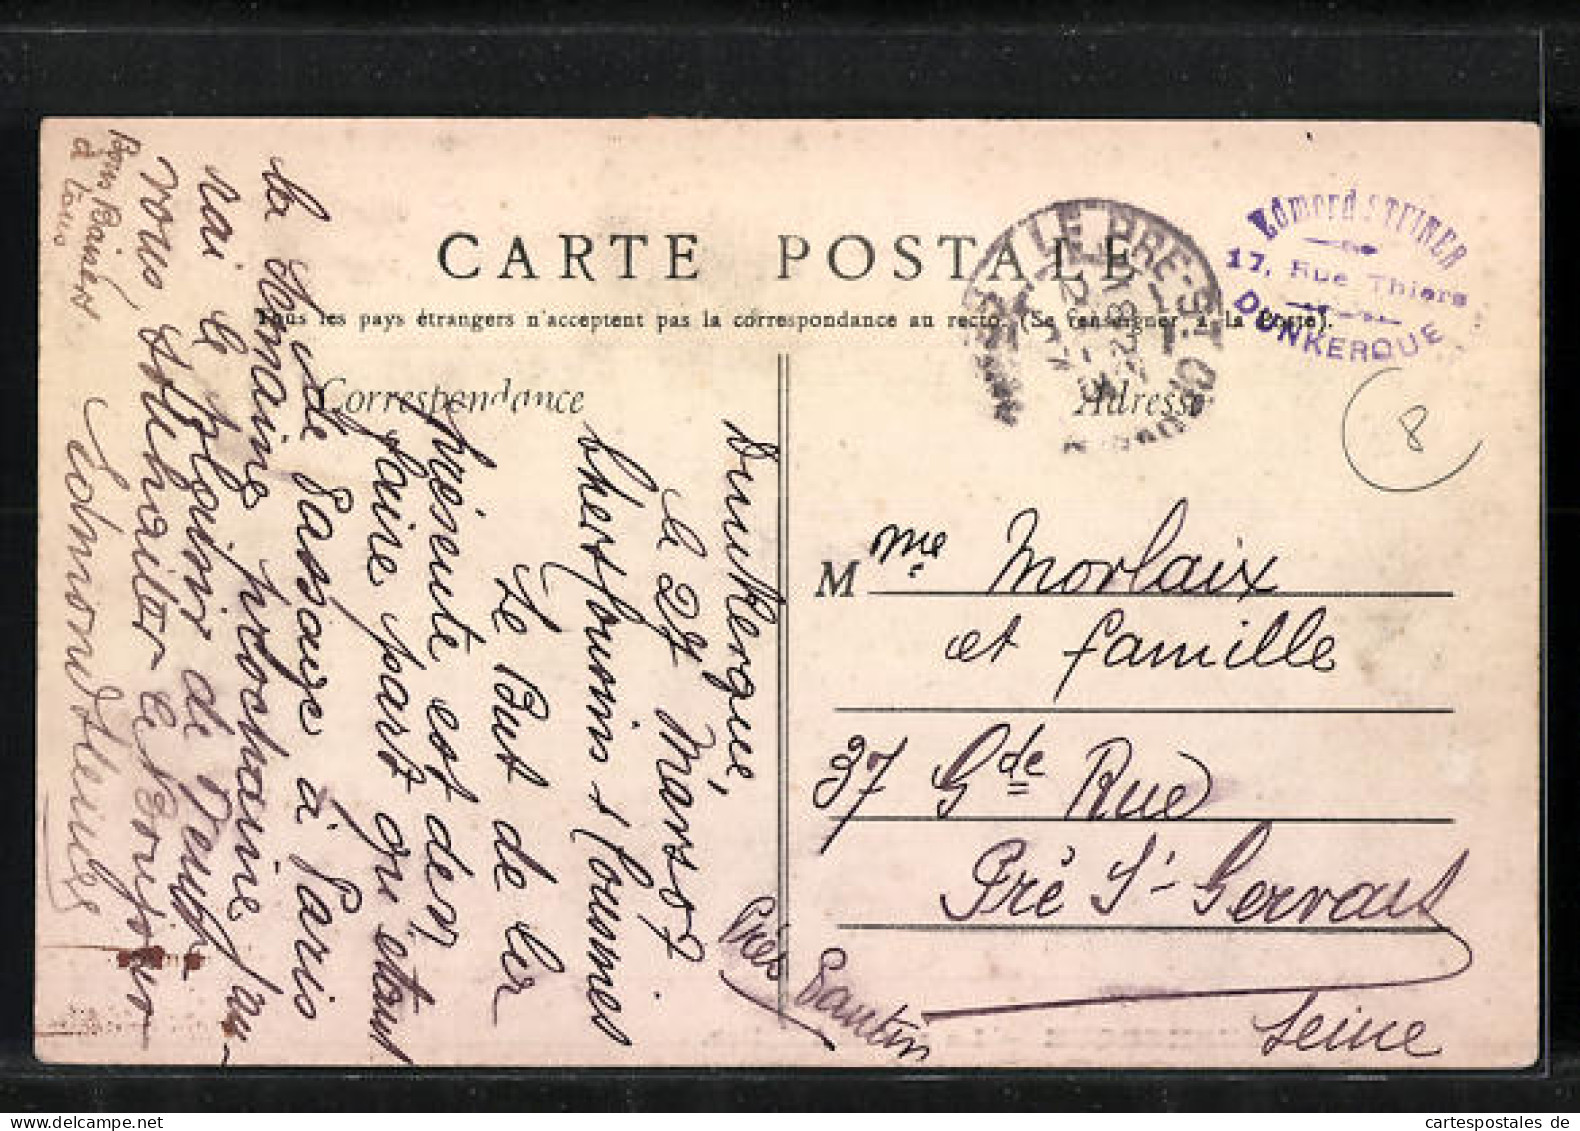 CARTE POSTALE
Tous les pays étrangers n'acceptent pas la correspondance au recto. (Se renseigner à la Poste).
Correspondance
Adresse
LE PRE-ST-GERVAIS
Edmond STEINER
17, Rue Thiers
DUNKERQUE
8
M me Morlaix
et famille
37 Gde Rue
Pré St Gervais
Seine
Près Pantin
Dunkerque,
le 27 Mars 07
Chers Amis
Le But de la
présente est de m
faire part que étant
de Passage à Paris
la semaine prochaine j'au-
rai le plaisir de venir
vous souhaiter le Bonjour
Edmond Steiner
Bons Baisers
à tous
cartespostales de